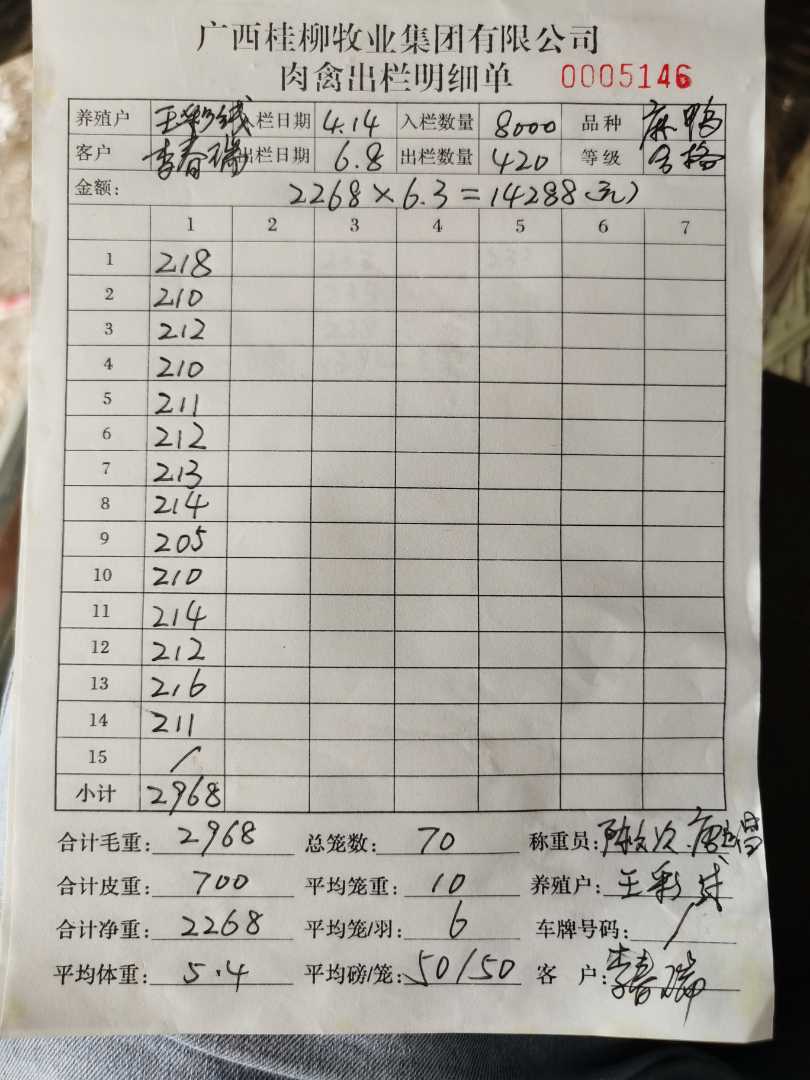 广西桂柳牧业集团有限公司
肉禽出栏明细单 0005146
养殖户 王彩线 入栏日期 4.14 入栏数量 8000 品种 麻鸭
客户 李春瑞 出栏日期 6.8 出栏数量 420 等级 合格
金额: 2268×6.3=14288(元)
1 2 3 4 5 6 7
1 218
2 210
3 212
4 210
5 211
6 212
7 213
8 214
9 205
10 210
11 214
12 212
13 216
14 211
15 /
小计 2968
合计毛重: 2968 总笼数: 70 称重员:
合计皮重: 700 平均笼重: 10 养殖户: 王彩线
合计净重: 2268 平均笼/羽: 6 车牌号码: /
平均体重: 5.4 平均磅/笼: 50/50 客户: 李春瑞